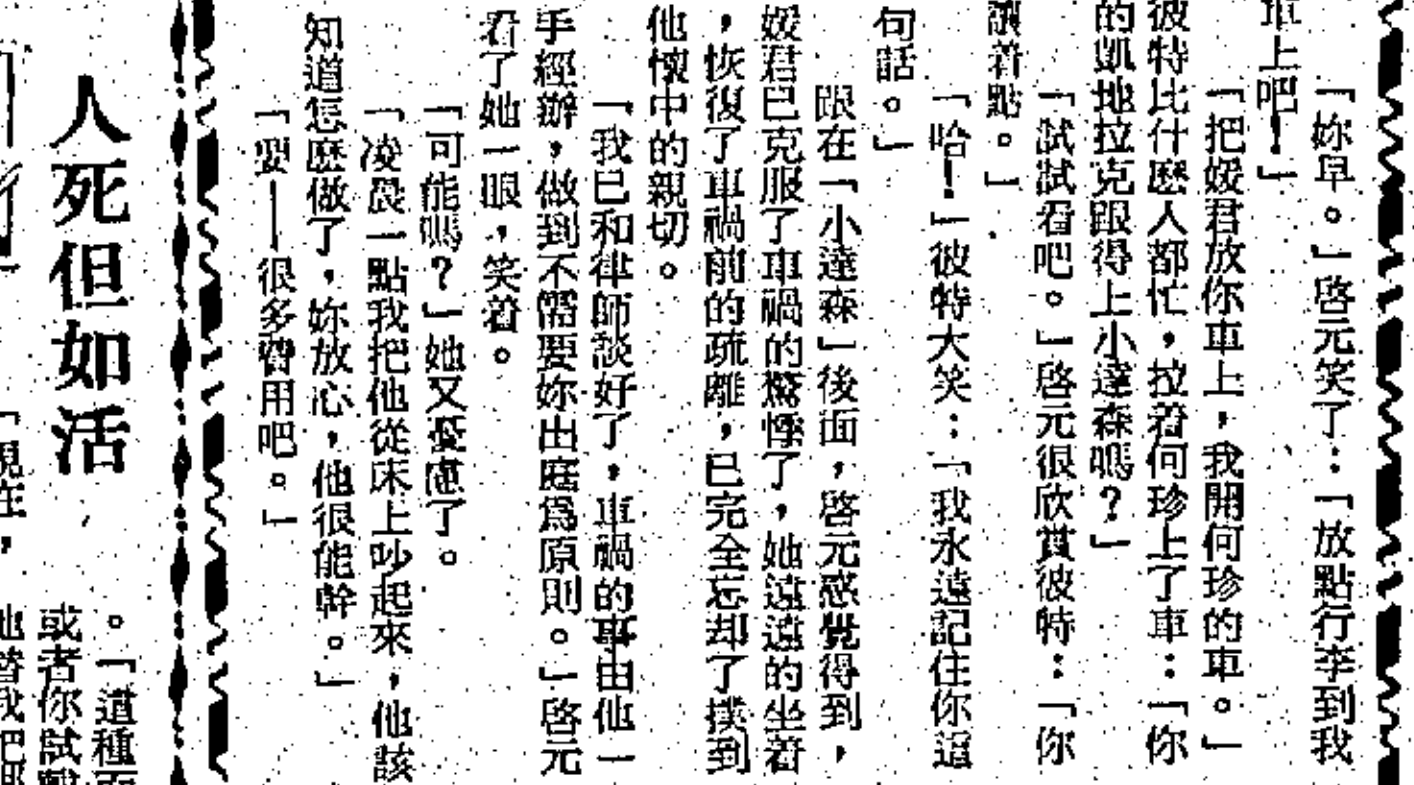 「妳早。」啓元笑了：「放點行李到我
車上吧！」
「把媛君放你車上，我開何珍的車。」
彼特比什麽人都忙，拉着何珍上了車：「你
的凱地拉克跟得上小達森嗎？」
「試試看吧。」啓元很欣賞彼特：「你
讓着點。」
「哈！」彼特大笑：「我永遠記住你這
句話。」
跟在「小達森」後面，啓元感覺得到，
媛君已克服了車禍的驚悸了，她遠遠的坐着
，恢復了車禍前的疏離，已完全忘却了撲到
他懷中的親切。
「我已和律師談好了，車禍的事由他一
手經辦，做到不需要妳出庭爲原則。」啓元
看了她一眼，笑着。
「可能嗎？」她又憂慮了。
「凌晨一點我把他從床上吵起來，他該
知道怎麽做了，妳放心，他很能幹。」
「要——很多費用吧。」
人死但如活
。「這種
或者你試
「現在，
他替我把